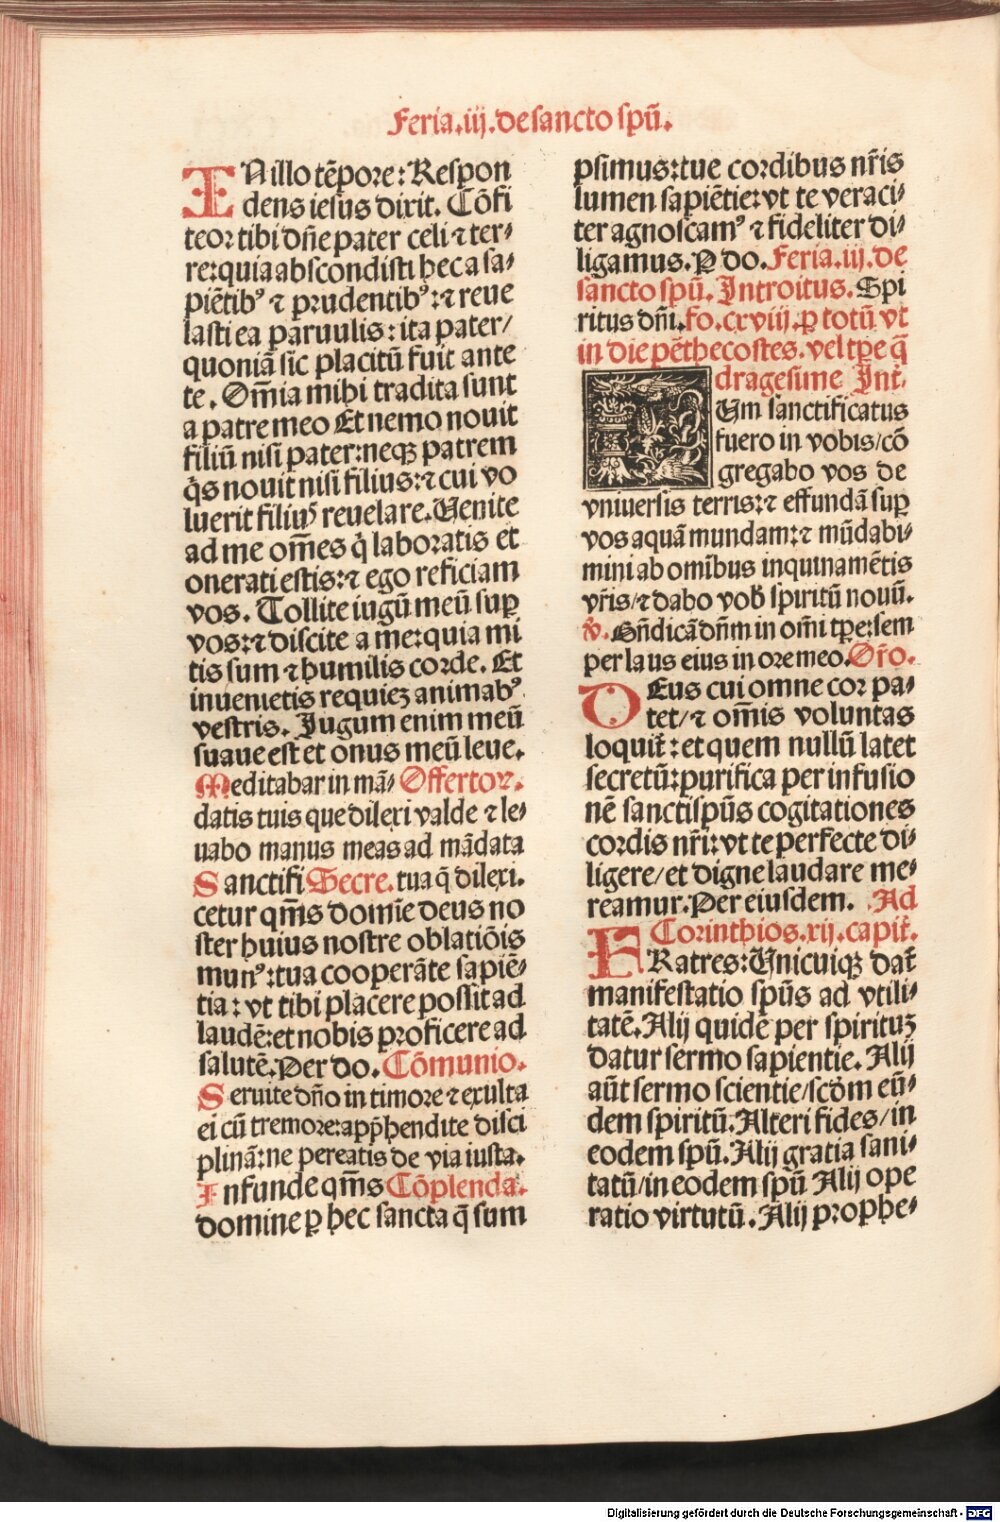 Feria.iij.de sancto spū.
IN illo tēpore: Respon
dens iesus dixit. Cōfi
teor tibi dn̄e pater celi ⁊ ter⸗
re:quia abscondisti hec a sa⸗
piētibꝰ ⁊ prudentibꝰ:⁊ reue
lasti ea paruulis: ita pater/
quoniā sic placitū fuit ante
te. Om̄ia mihi tradita sunt
a patre meo Et nemo nouit
filiū nisi pater:neqꝫ patrem
q̇s nouit nisi filius:⁊ cui vo
luerit filiuꝰ reuelare. Uenite
ad me om̄es q̇ laboratis et
onerati estis:⁊ ego reficiam
vos. Tollite iugū meū suꝑ
vos:⁊ discite a me:quia mi
tis sum ⁊ humilis corde. Et
inuenietis requieꝫ animabꝰ
vestris. Jugum enim meū
suaue est et onus meū leue.
Meditabar in mā⸗ Offertoꝝ.
datis tuis que dilexi valde ⁊ le⸗
uabo manus meas ad mādata
Sanctifi Secre. tua q̄ dilexi.
cetur qm̄s domīe deus no
ster huius nostre oblatiōis
munꝰ:tua cooperāte sapiē⸗
tia: vt tibi placere possit ad
laudē:et nobis proficere ad
salutē. Per do. Cōmunio.
Seruite dn̄o in timore ⁊ exulta
ei cū tremore:app̄hendite disci
plinā:ne pereatis de via iusta.
Infunde qm̄s Cōplenda.
domine ꝑ hec sancta q̄ sum
psimus:tue cordibus nr̄is
lumen sapiētie:vt te veraci⸗
ter agnoscamꝰ ⁊ fideliter di⸗
ligamus. P do. Feria.iij.de
sancto spū. Introitus. Spi
ritus dn̄i. fo.cxviij.ꝑ totū vt
in die pēthecostes. vel tꝑe q̄
dragesime Int̄.
CUm sanctificatus
fuero in vobis/cō
gregabo vos de
vniuersis terris:⁊ effundā suꝑ
vos aquā mundam:⁊ mūdabi⸗
mini ab omībus inquinamētis
vr̄is/⁊ dabo vob̄ spiritū nouū.
v̄. Bn̄dicā dn̄m in om̄i tꝑe:sem
per laus eius in ore meo. Or̄o.
DEus cui omne cor pa⸗
tet/⁊ om̄is voluntas
loquit̄: et quem nullū latet
secretū:purifica per infusio
nē sancti spūs cogitationes
cordis nr̄i:vt te perfecte di⸗
ligere/et digne laudare me⸗
reamur. Per eiusdem. Ad
Corinthios.xij.capit̄.
FRatres: Unicuiqꝫ dat̄
manifestatio spūs ad vtili⸗
tatē. Alij quidē per spirituꝫ
datur sermo sapientie. Alij
aūt sermo scientie/scd̄m eū⸗
dem spiritū. Alteri fides/in
eodem spū. Alij gratia sani⸗
tatū/in eodem spū Alij ope
ratio virtutū. Alij prophe⸗
Digitalisierung gefördert durch die Deutsche Forschungsgemeinschaft - DFG